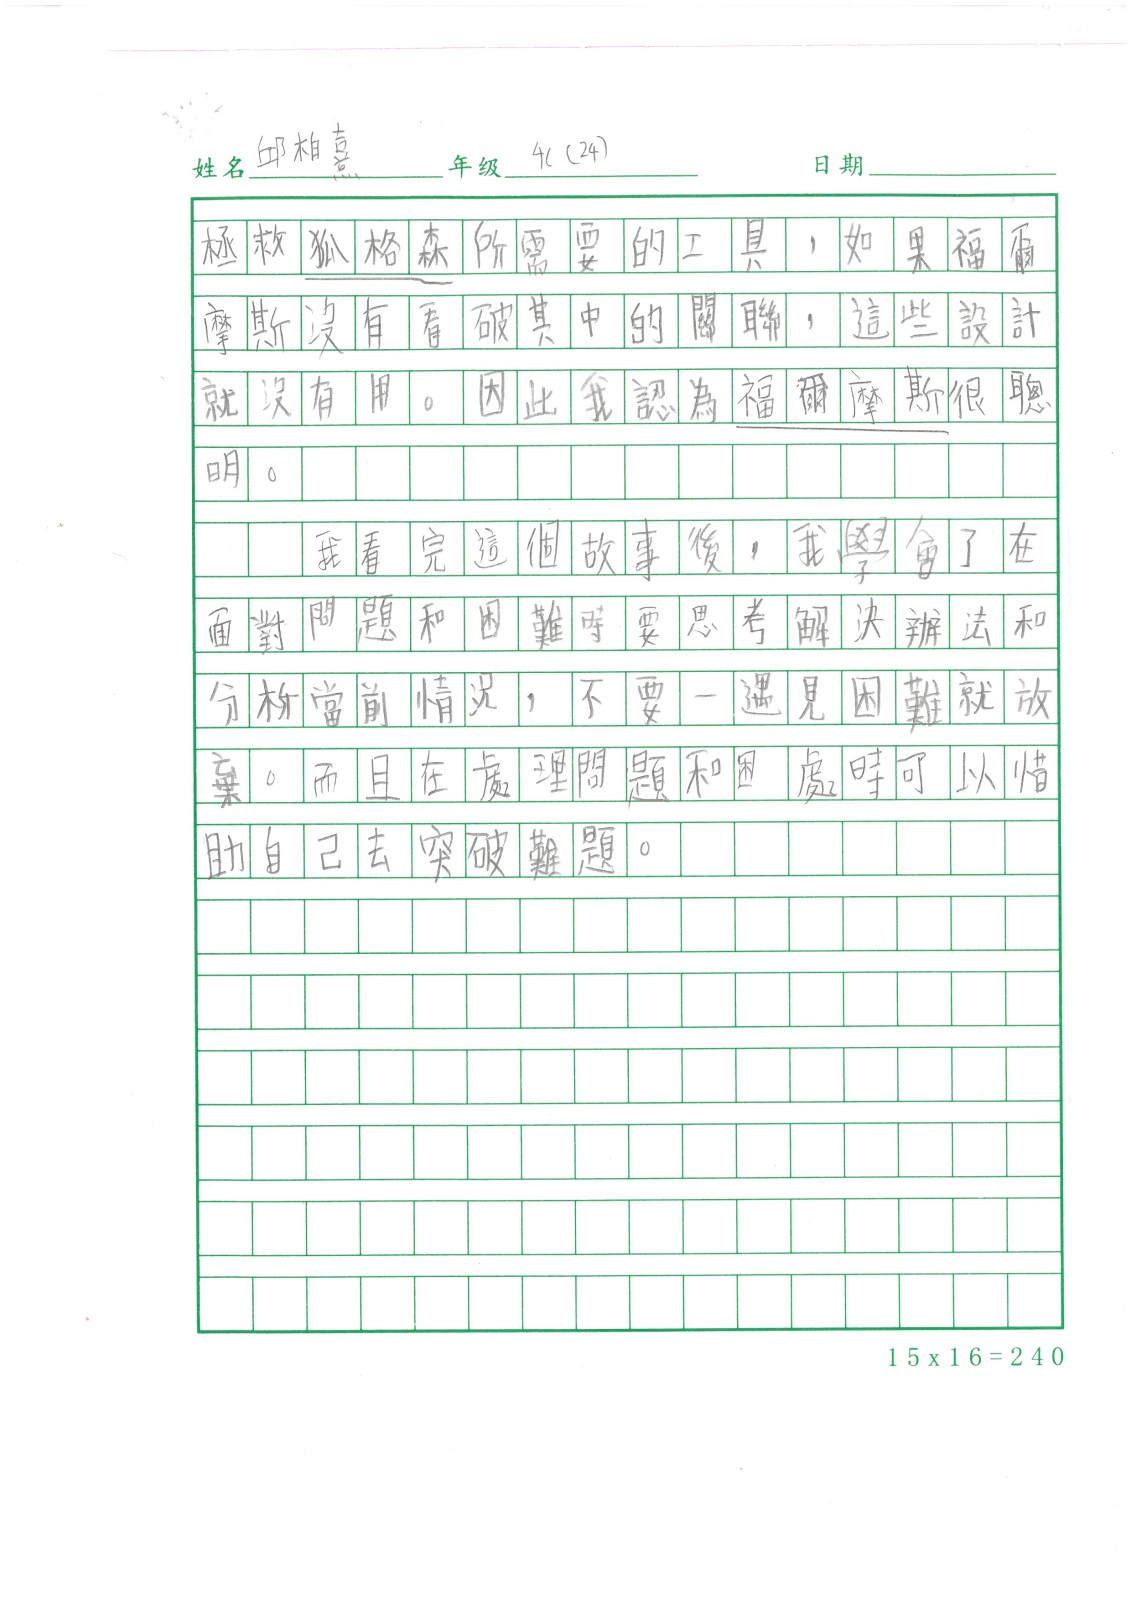 姓名 邱柏熹 年级 4C (24) 日期
拯救狐格森所需要的工具，如果福爾
摩斯沒有看破其中的關聯，這些設計
就沒有用。因此我認為福爾摩斯很聰
明。
我看完這個故事後，我學會了在
面對問題和困難時要思考解決辦法和
分析當前情況，不要一遇見困難就放
棄。而且在處理問題和困處時可以惜
助自己去突破難題。
15x16=240